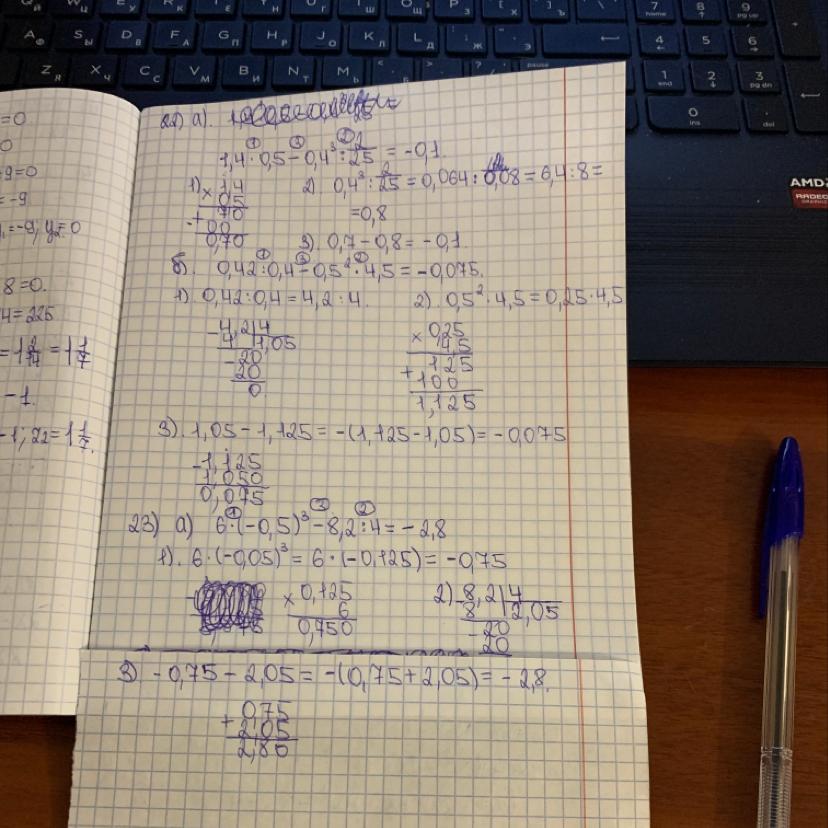 22) а).
1,4 · 0,5 − 0,4³ : 2/25 = −0,1.
1) × 1,4 2) 0,4³ : 2/25 = 0,064 : 0,08 = 6,4 : 8 =
0,5
+ 70 = 0,8
00
0,70 3). 0,7 − 0,8 = −0,1.
б). 0,42 : 0,4 − 0,5² · 4,5 = −0,075.
1) 0,42 : 0,4 = 4,2 : 4. 2) 0,5² · 4,5 = 0,25 · 4,5
− 4,2 | 4 × 0,25
4 1,05 4,5
− 20 125
20 + 100
0 1,125
3). 1,05 − 1,125 = −(1,125 − 1,05) = −0,075
− 1,125
1,050
0,075
23) а) 6 · (−0,5)³ − 8,2 : 4 = −2,8
1). 6 · (−0,05)³ = 6 · (−0,125) = −0,75
× 0,125 2) − 8,2 | 4
6 8 2,05
0,750 − 20
20
3) −0,75 − 2,05 = −(0,75 + 2,05) = −2,8.
+ 0,75
2,05
2,80
= 0
= −9
= −9; y₂ = 0
8 = 0.
4 = 225
= 1 2/14 = 1 1/7
− 1.
− 1; z₂ = 1 1/7.
AMD
RADEON
GRAPHICS
7 home
8
9 pg up
4
5
6
1 end
2
3 pg dn
0 ins
. del
pause